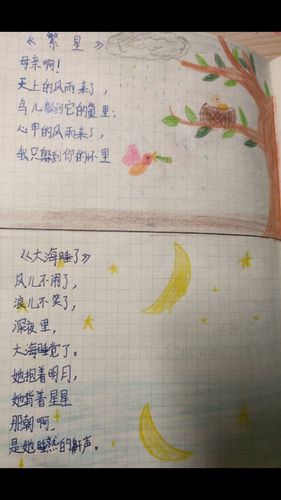 《繁星》
母亲啊！
天上的风雨来了，
鸟儿躲到它的巢里；
心中的风雨来了，
我只躲到你的怀里
《大海睡了》
风儿不闹了，
浪儿不笑了，
深夜里，
大海睡觉了。
她抱着明月，
她背着星星
那朝啊，
是她睡熟的鼾声。